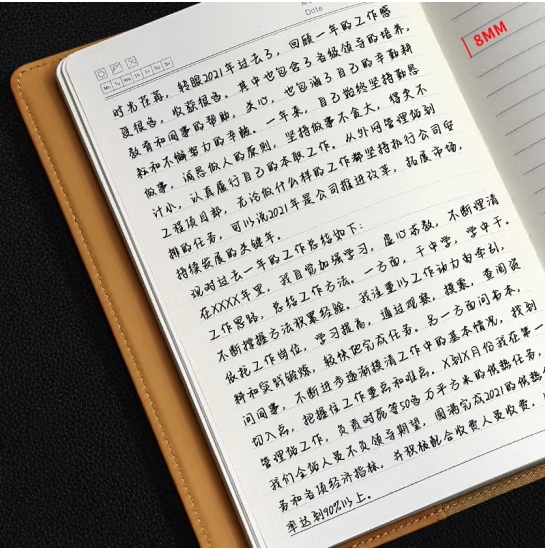 Date
Mo Tu We Th Fr Sa Su
8MM
时光荏苒，转眼2021年过去了，回顾一年的工作感
触很多，收获很多。其中也包含了各级领导的培养、
教育和同事的帮助、关心，也包涵了自己的辛勤耕
耘和不懈努力的辛酸。一年来，自己始终坚持勤恳
做事，诚恳做人的原则，坚持做事不贪大，得失不
计小，认真履行自己的本职工作。从外网管理站到
工程项目部，无论做什么样的工作都坚持执行公司安
排的任务，可以说2021年是公司推进改革、拓展市场、
持续发展的关键年。
现对过去一年的工作总结如下：
在XXXX年里，我自觉加强学习，虚心求教，不断理清
工作思路，总结工作方法。一方面，干中学，学中干，
不断摸握方法积累经验。我注重以工作动力由牵引，
依托工作岗位，学习提高，通过观察，摸索，查阅资
料和实践锻炼，较快地完成任务。另一方面问书本，
问同事，不断进步逐渐摸清工作中的基本情况，找到
切入点，把握住工作重点和难点。X到X月份我在第一
管理站工作，负责对院等50多万平方米的供热任务，
我们全站人员不负领导期望，圆满完成2021的供热
务和各项经济指标，并积极配合收费人员收费，
率达到90%以上。